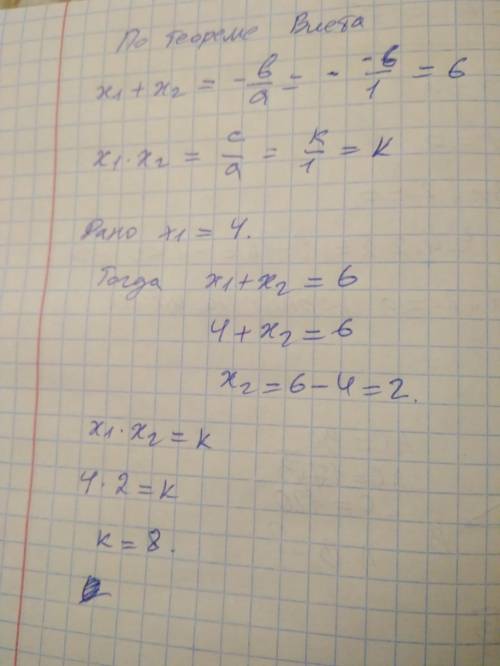 По теореме Виета
x₁ + x₂ = - в/а = - -6/1 = 6
x₁ · x₂ = c/а = к/1 = к
Дано x₁ = 4.
Тогда x₁ + x₂ = 6
4 + x₂ = 6
x₂ = 6 - 4 = 2.
x₁ · x₂ = к
4 · 2 = к
к = 8.